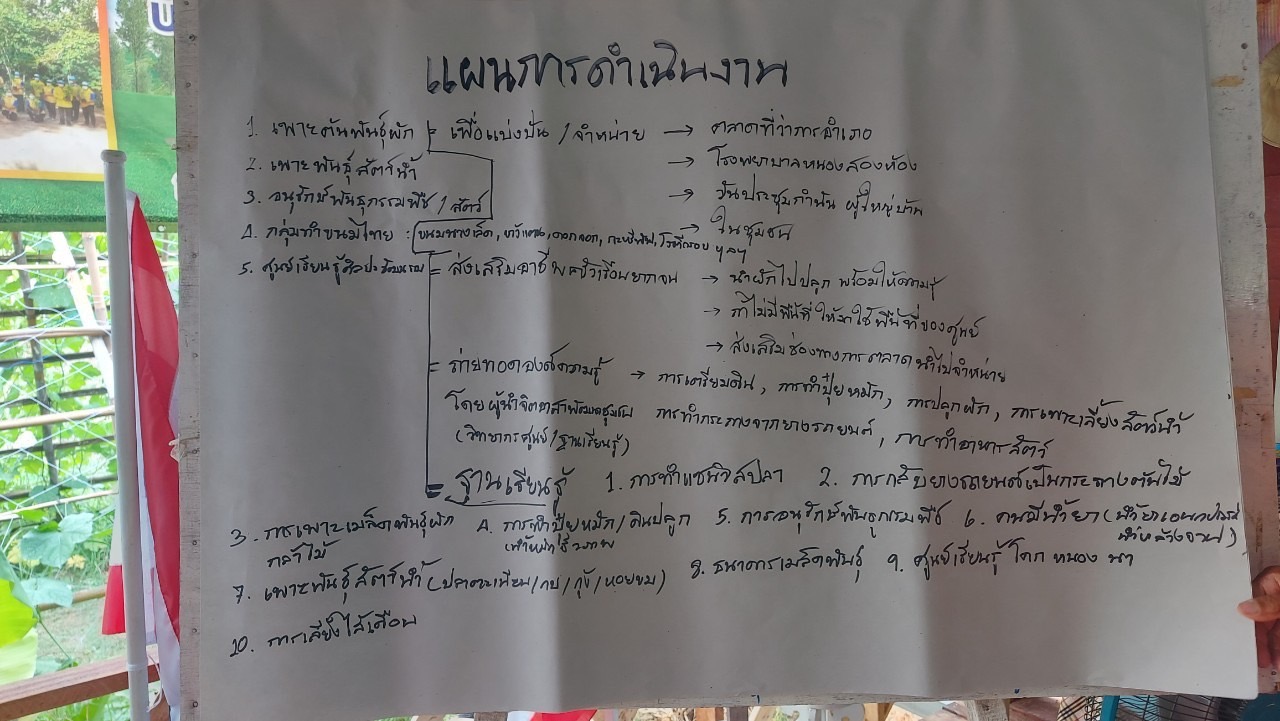 แผนการดำเนินงาน
1. เพาะต้นพันธุ์ผัก = เพื่อแบ่งปัน / จำหน่าย → ตลาดที่ว่าการอำเภอ
2. เพาะพันธุ์สัตว์น้ำ → โรงพยาบาลหนองสองห้อง
3. อนุรักษ์พันธุกรรมพืช / สัตว์ → วันประชุมกำนัน ผู้ใหญ่บ้าน
4. กลุ่มทำขนมไทย : ขนมนางเล็ด, ดอกจอก, กะหรี่พัฟ, โรตีกรอบ ฯลฯ → ในชุมชน
5. ศูนย์เรียนรู้ศิลปะวัฒนธรรม = ส่งเสริมอาชีพครัวเรือนยากจน → นำผักไปปลูก พร้อมให้ความรู้
→ ถ้าไม่มีพื้นที่ ให้มาใช้พื้นที่ของศูนย์
→ ส่งเสริมช่องทางการตลาดนำไปจำหน่าย
= ถ่ายทอดองค์ความรู้ → การเตรียมดิน, การทำปุ๋ยหมัก, การปลูกผัก, การเพาะเลี้ยงสัตว์น้ำ
โดยผู้นำจิตอาสาพัฒนาชุมชน การทำกระถางจากยางรถยนต์, การทำอาหารสัตว์
(วิทยากรศูนย์/ฐานเรียนรู้)
= ฐานเรียนรู้ 1. การทำแซนวิสปลา 2. การกลับยางรถยนต์เป็นกระถางต้นไม้
3. การเพาะเมล็ดพันธุ์ผัก 4. การทำปุ๋ยหมัก/ดินปลูก 5. การอนุรักษ์พันธุกรรมพืช 6. คนมีน้ำยา (น้ำยาเอนกประสงค์
กล้าไม้ (น้ำหมักชีวภาพ น้ำยาล้างจาน)
7. เพาะพันธุ์สัตว์น้ำ (ปลาตะเพียน/กบ/กุ้ง/หอยขม) 8. ธนาคารเมล็ดพันธุ์ 9. ศูนย์เรียนรู้ โคก หนอง นา
10. การเลี้ยงไส้เดือน